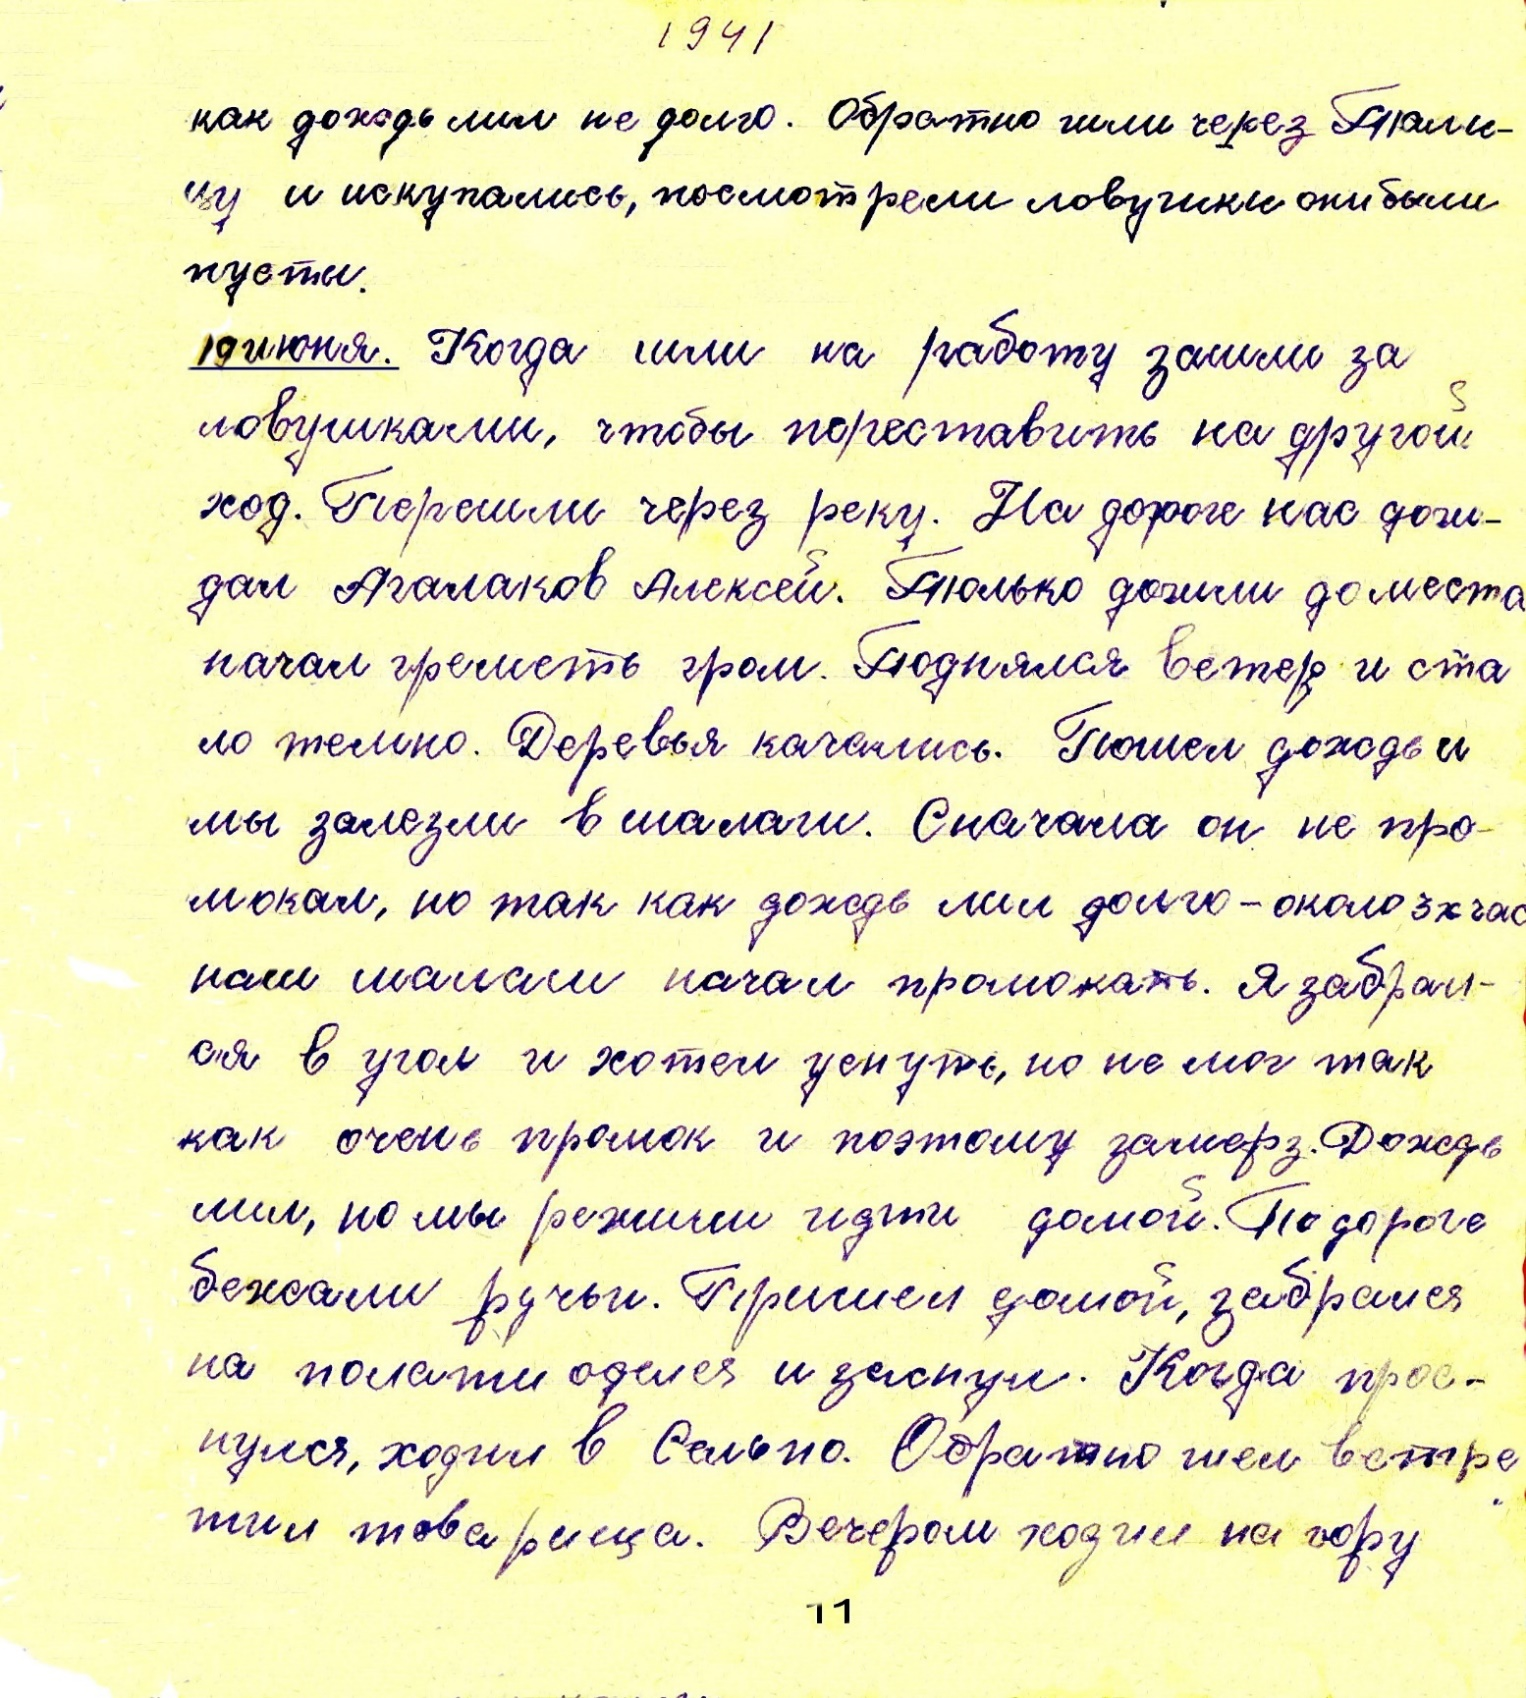 1941
как дождь лил не долго. Обратно шли через Тюли-
цу и искупались, посмотрели ловушки они были
пусты.
19 июня. Когда шли на работу зашли за
ловушками, чтобы пореставить на другой
ход. Перешли через реку. На дороге нас дожи-
дал Агалаков Алексей. Только дошли до места
начал греметь гром. Поднялся ветер и ста
ло темно. Деревья качались. Пошел дождь и
мы залезли в шалаш. Сначала он не про-
мокал, но так как дождь лил долго - около 3х час
наш шалаш начал промокать. Я забрал-
ся в угол и хотел уснуть, но не мог так
как очень промок и поэтому замерз. Дождь
лил, но мы режили идти домой. По дороге
бежали ручьи. Пришел домой, забрался
на полати оделся и заснул. Когда прос-
нулся, ходил в Сельпо. Обратно шел встре
тил товарища. Вечером ходил на гору
11